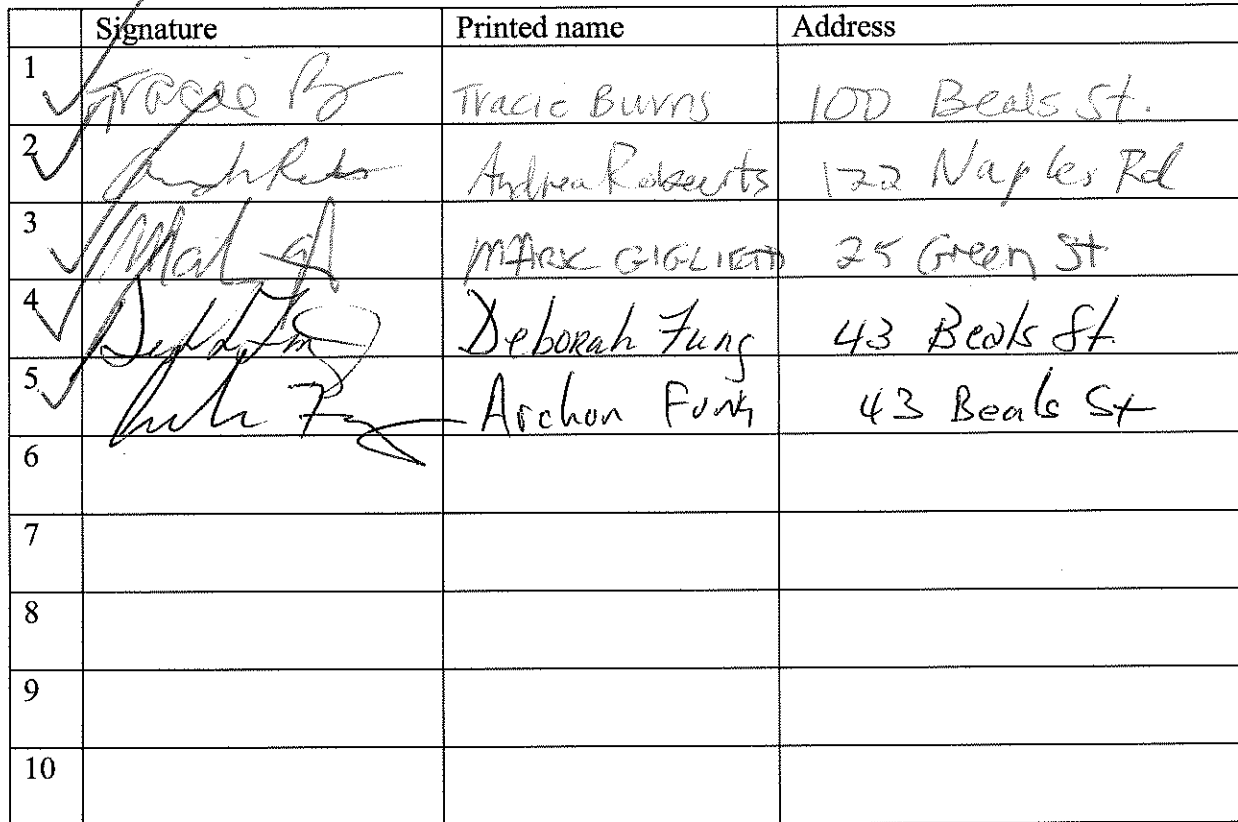 Signature Printed name Address
1 Tracie B Tracie Burns 100 Beals St.
2 Andrea Roberts 122 Naples Rd
3 MARK 25 Green St
4 Deborah Fung 43 Beals St.
5 Archon Fung 43 Beals St
6
7
8
9
10